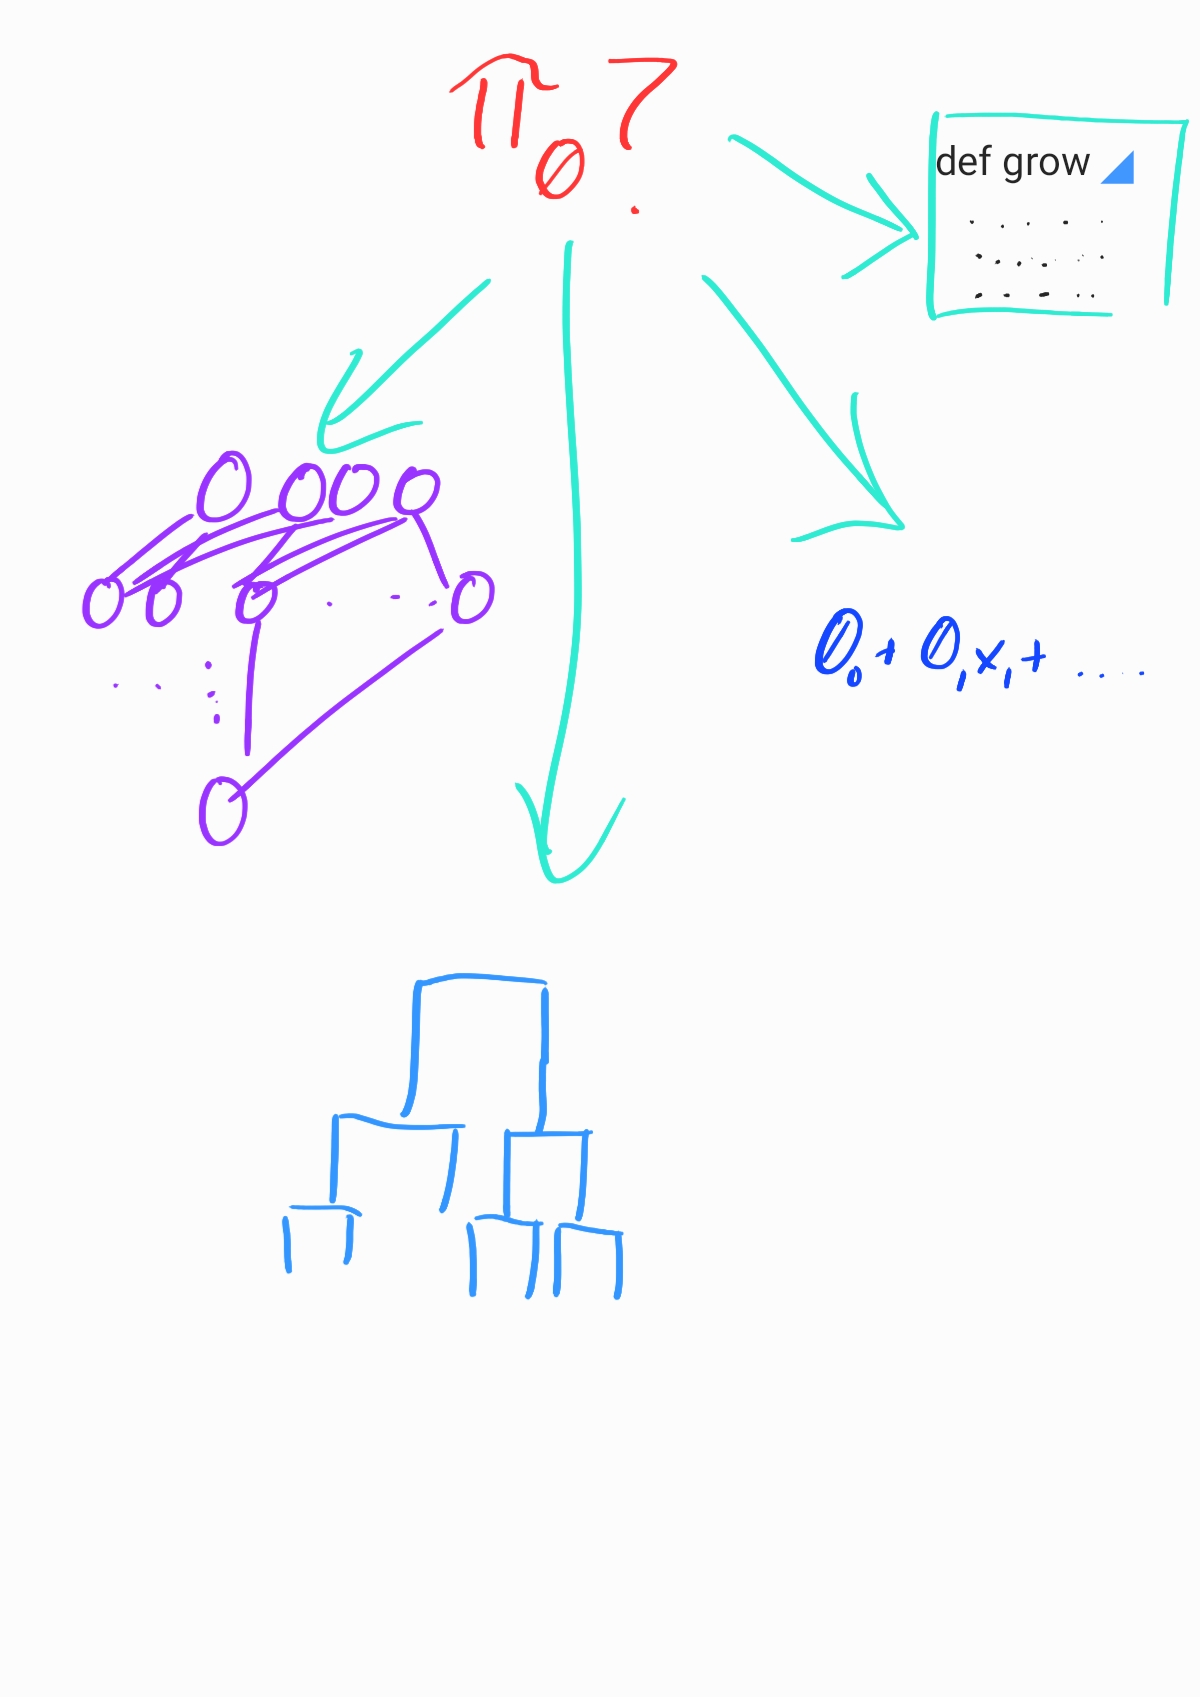 π_θ ?
def grow
θ₀ + θ₁x₁ + ....